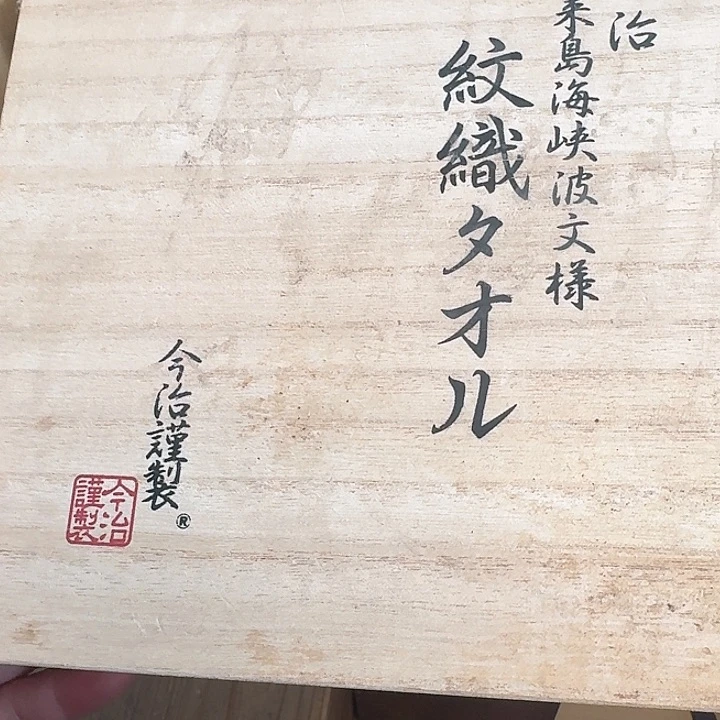 治
来島海峡波文様
紋織タオル
今治謹製®
今治
謹製